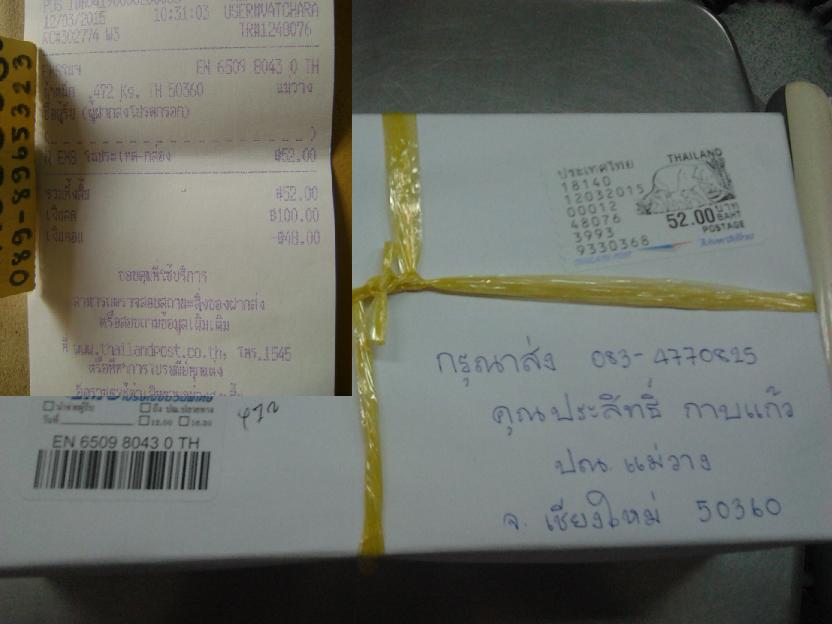 12/03/2015 10:31:03 USER#WATCHARA
RC#302774 W3 TR#1248076
EN 6509 8043 0 TH
น้ำหนัก .472 Kg. TH 50360 แม่วาง
ชื่อผู้รับ (ผู้ฝากส่งโปรดกรอก)
( )
EMS ในประเทศ-กล่อง ฿52.00
รวมทั้งสิ้น ฿52.00
เงินสด ฿100.00
เงินทอน ฿48.00
ขอบคุณที่ใช้บริการ
สามารถตรวจสอบสถานะสิ่งของฝากส่ง
หรือสอบถามข้อมูลเพิ่มเติม
ที่ www.thailandpost.co.th, โทร.1545
หรือที่ทำการไปรษณีย์ทุกแห่ง
089-8965323
ประเทศไทย THAILAND
18140
12032015
00012
48076
3993
9330368
52.00 บาท BAHT
POSTAGE
THAILAND POST
กรุณาส่ง 083-4770825
คุณประสิทธิ์ กาบแก้ว
ปณ. แม่วาง
จ. เชียงใหม่ 50360
472
วันที่ 12.00 16.30
EN 6509 8043 0 TH